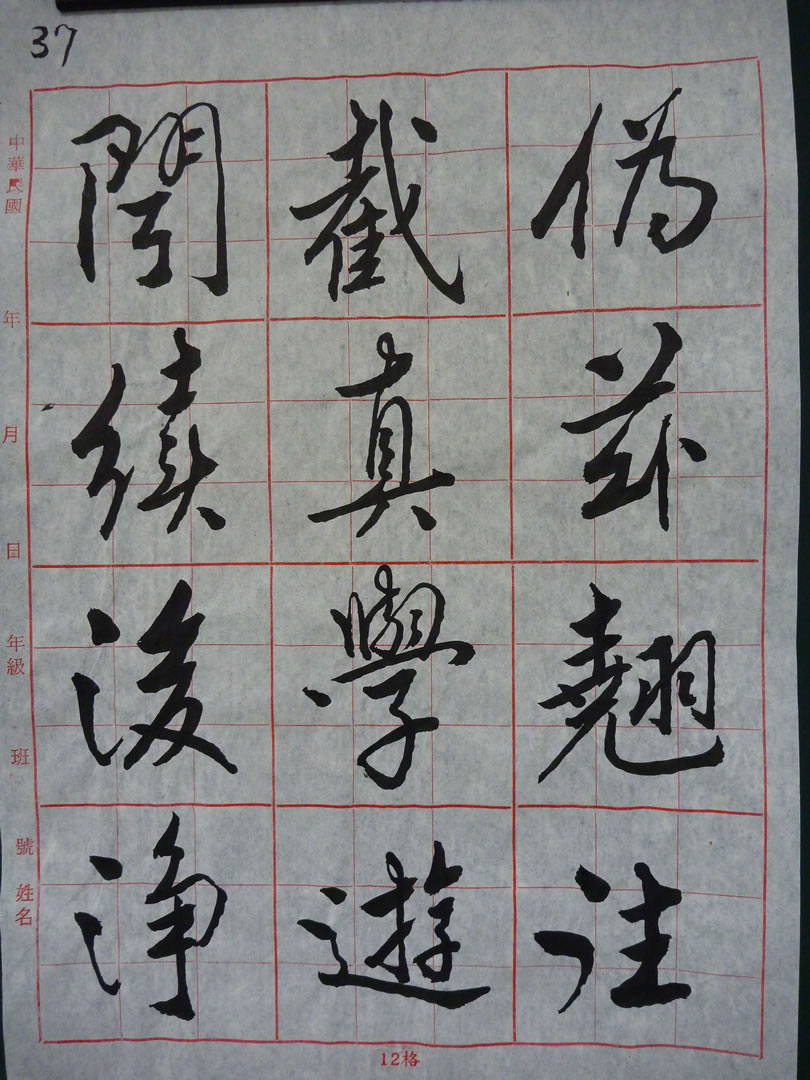 聞截偽
續真茲
後學翹
淨遊往
37
中華民國 年 月 日 年級 班 號 姓名
12格